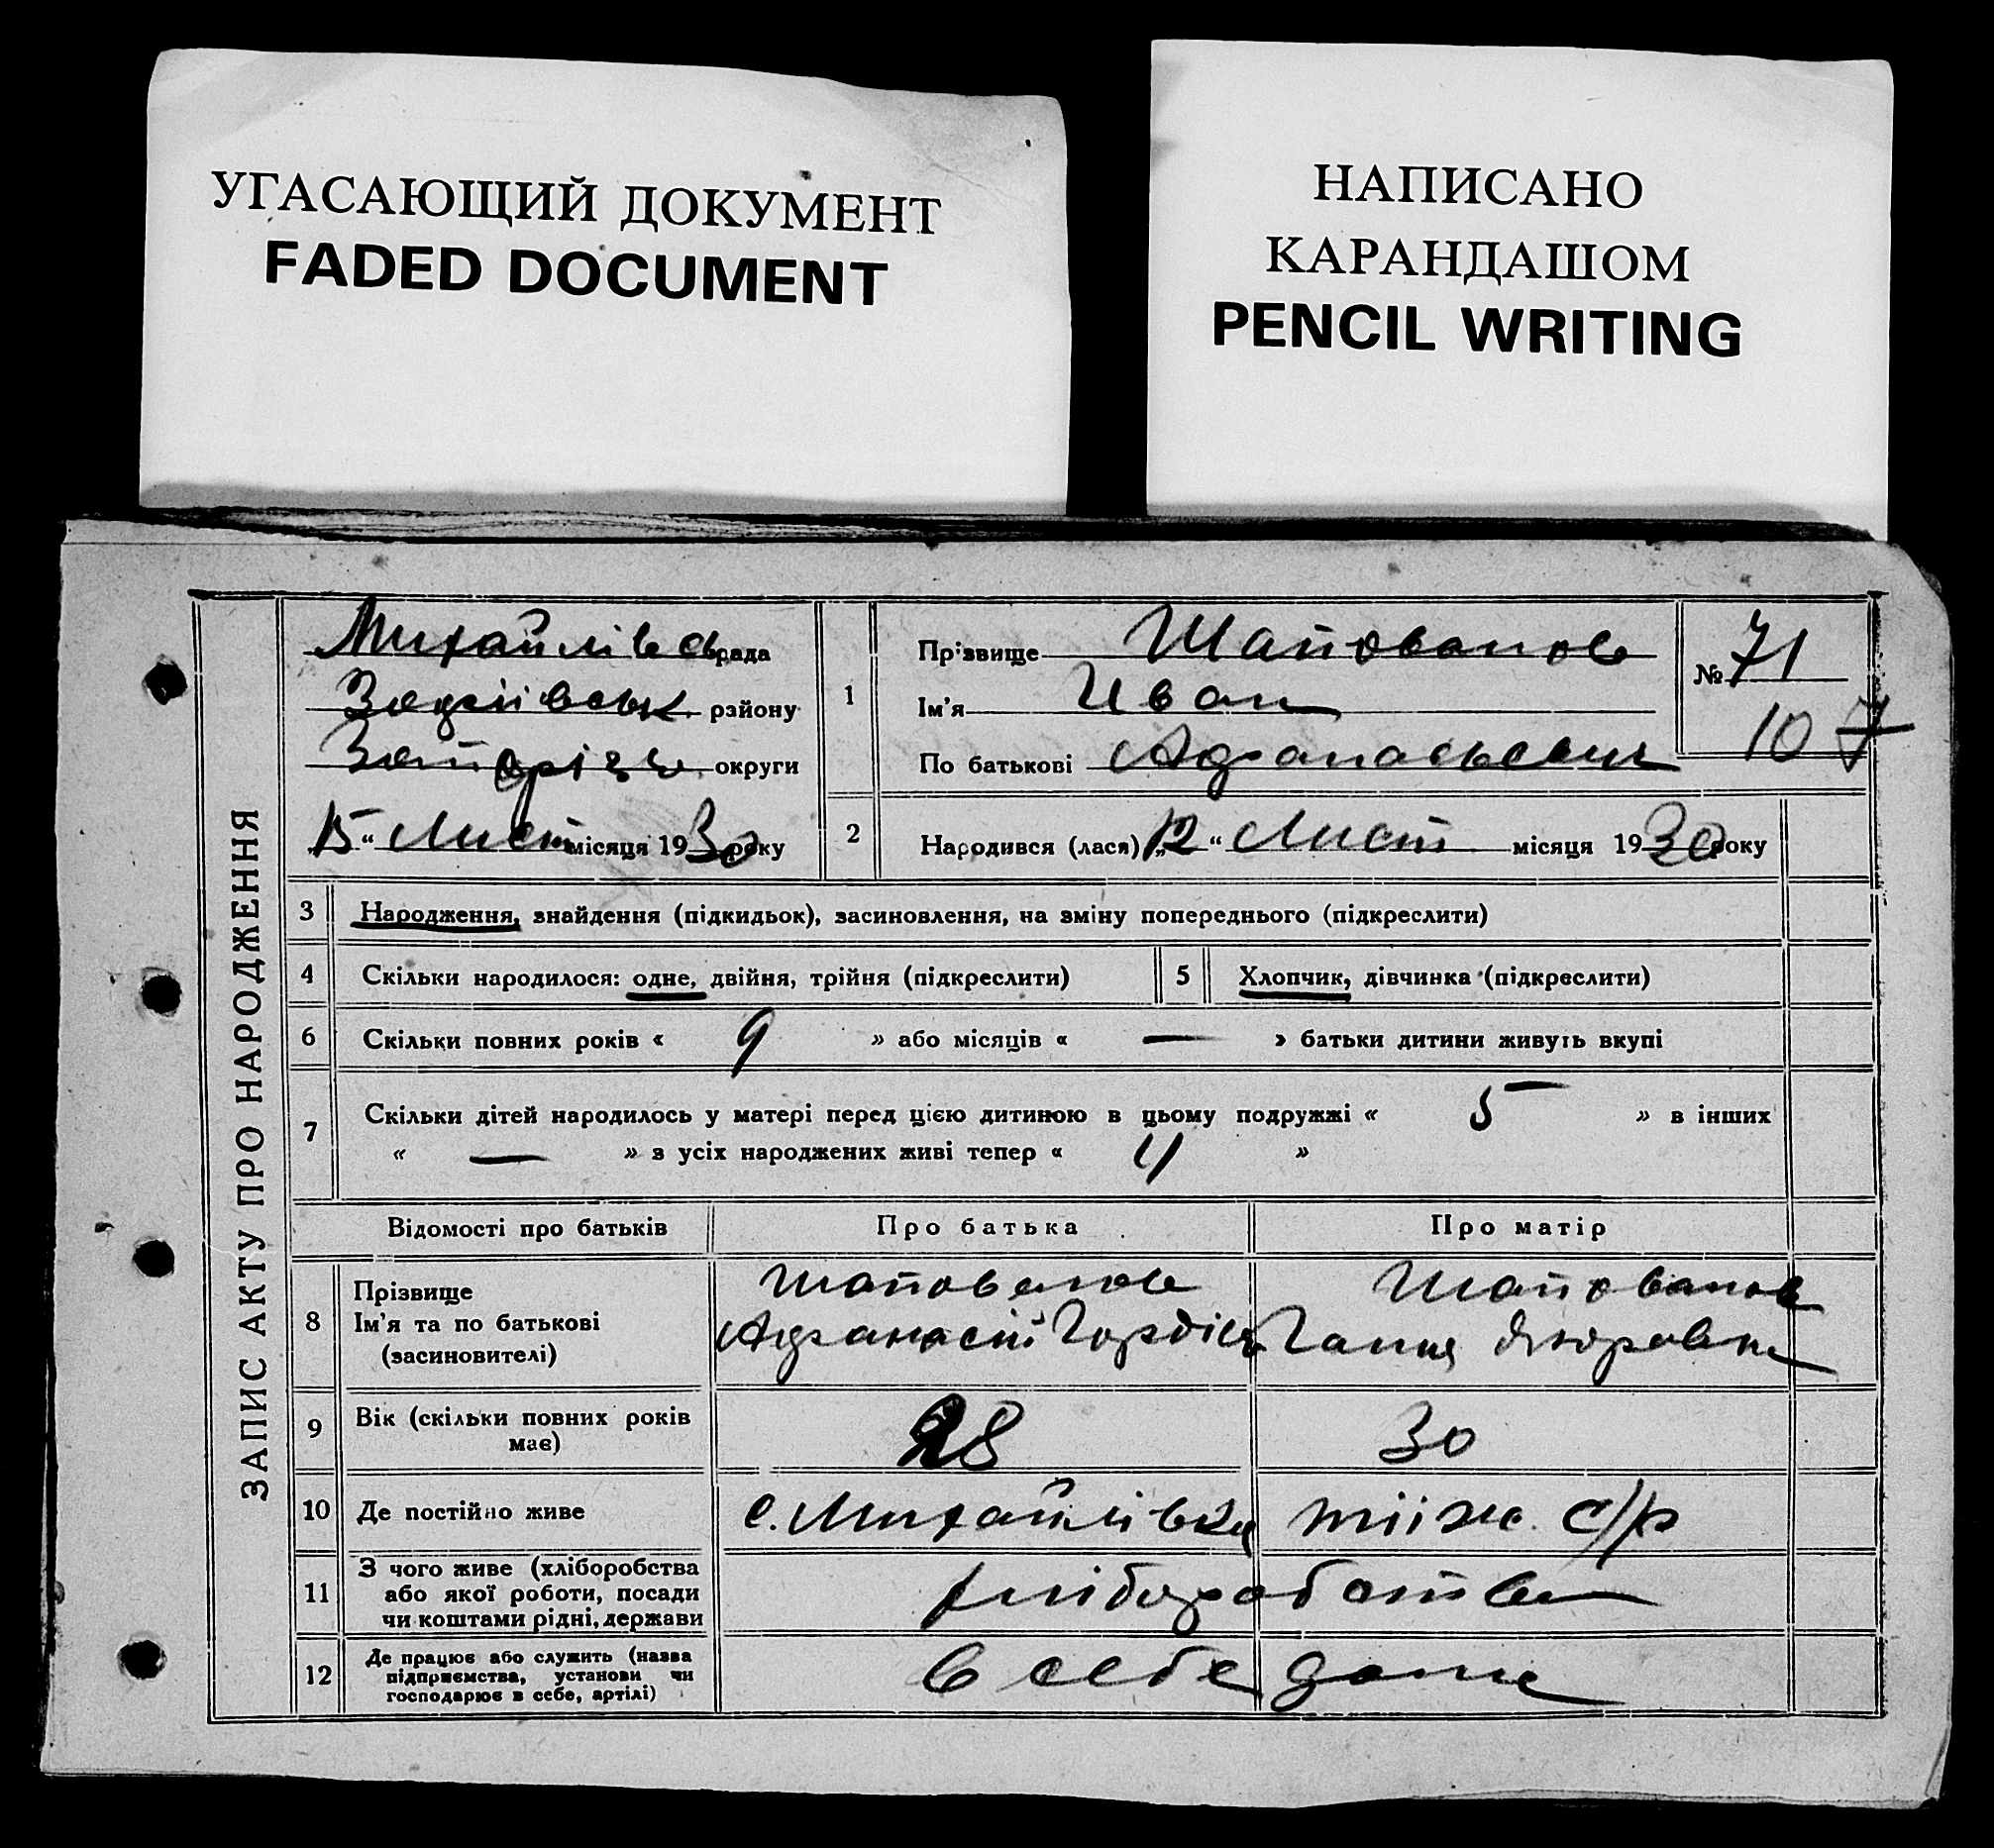 УГАСАЮЩИЙ ДОКУМЕНТ
FADED DOCUMENT
НАПИСАНО
КАРАНДАШОМ
PENCIL WRITING
ЗАПИС АКТУ ПРО НАРОДЖЕННЯ
Михайлівсь рада
району
Запорізь округи
15 “ Лист місяця 1930 року
1
Прізвище Шаповалов
Ім'я Иван
По батькові Афанасьевич
№ 71
107
2
Народився (лася) „12 “ Лист місяця 1930 року
3 Народження, знайдення (підкидьок), засиновлення, на зміну попереднього (підкреслити)
4 Скільки народилося: одне, двійня, трійня (підкреслити) 5 Хлопчик, дівчинка (підкреслити)
6 Скільки повних років « 9 » або місяців « — » батьки дитини живуть вкупі
7 Скільки дітей народилось у матері перед цією дитиною в цьому подружжі « 5 » в інших
« — » з усіх народжених живі тепер « 4 »
Відомості про батьків Про батька Про матір
8 Прізвище
Ім'я та по батькові
(засиновителі)
Шаповалов
Афанасій Гордієв
Шаповалов
Ганна
9 Вік (скільки повних років
має)
28 30
10 Де постійно живе с. Михайлівка тііж с/р
11 З чого живе (хліборобства
або якої роботи, посади
чи коштами рідні, держави
хліборобства
12 Де працює або служить (назва
підприємства, установи чи
господарює в себе, артілі)
в себе дома